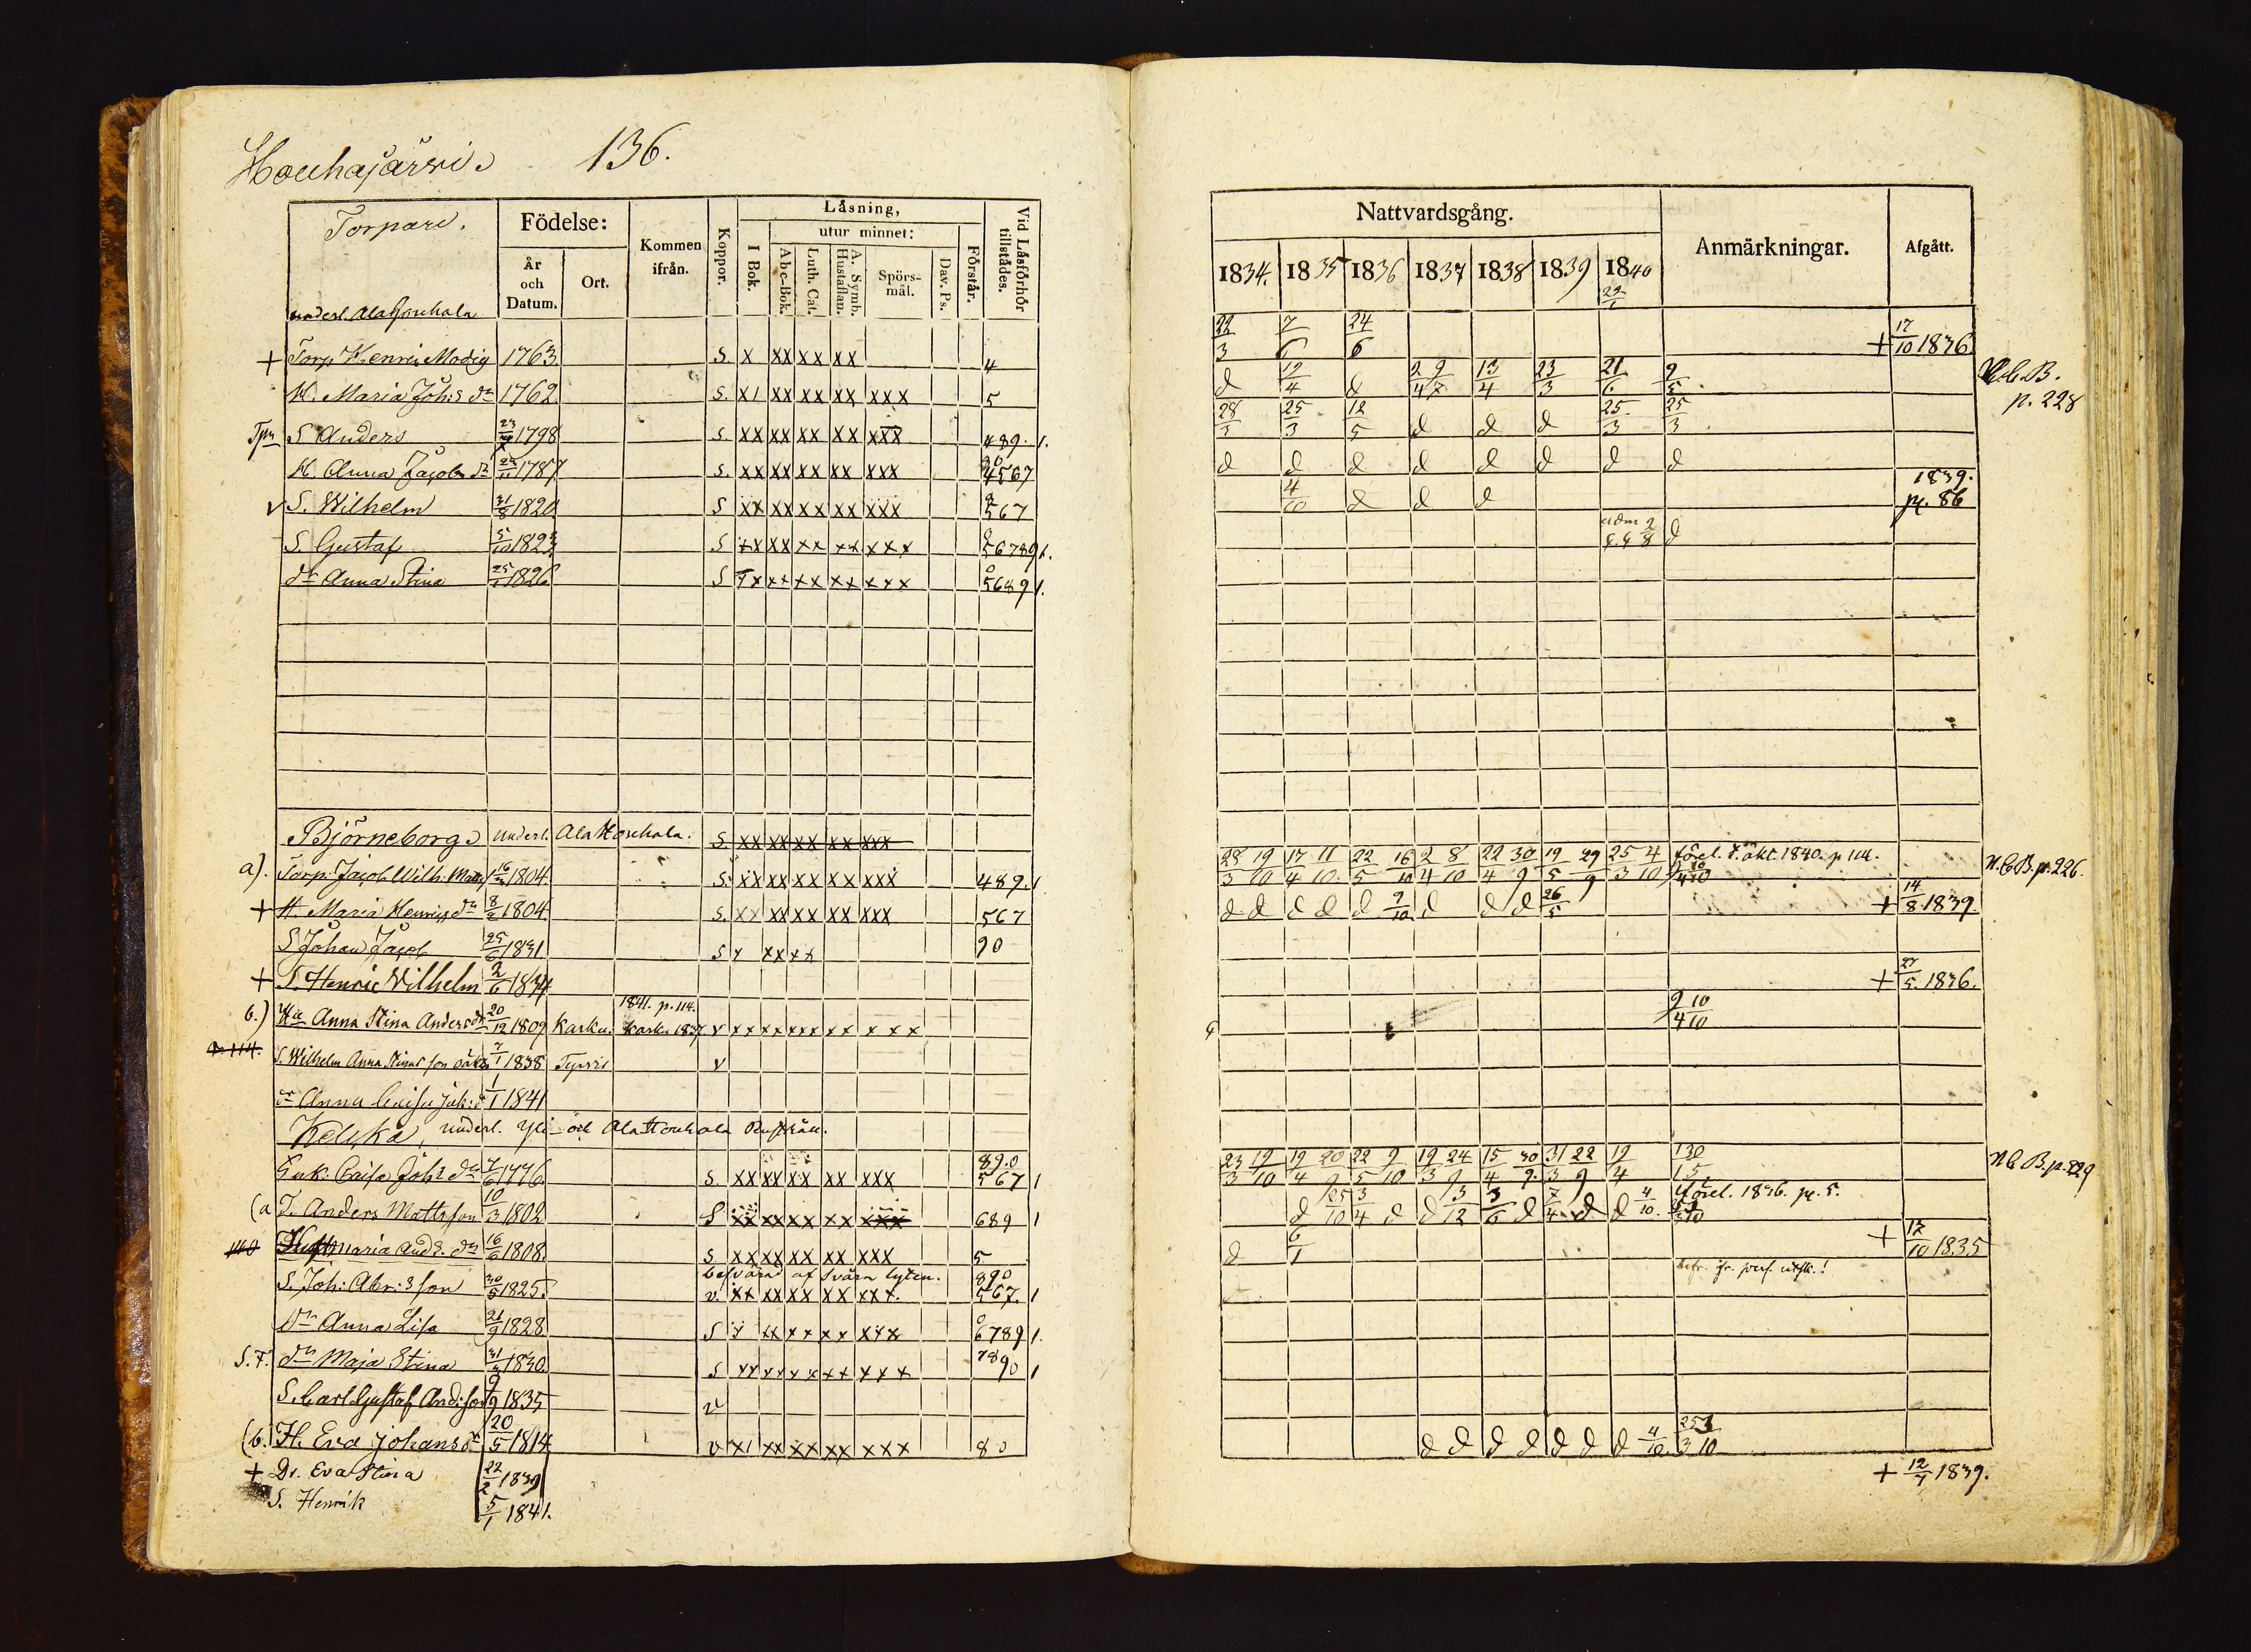 Houhajärvi 136.
Torpare.
underl. Ala Houhala
Födelse:
År och Datum.
Ort.
Kommen ifrån.
Koppor.
Läsning,
I Bok.
utur minnet:
Abc-Bok.
Luth. Cat.
A. Symb. Hustaflan.
Spörs-mål.
Dav. Ps.
Förstår.
Vid Läsförhör tillstädes.
Nattvardsgång.
1834. 1835 1836 1837 1838 1839 1840
Anmärkningar.
Afgått.
+ Torp Henric Modig 1763 S. x xx xx xx 4 22/3 7/6 24/6 + 17/10 1836.
H. Maria Joh:s dr 1762 S. x1 xx xx xx xxx 5 N.C.B. p. 228
S Anders 1798 S. xx xx xx xx xxx 489. 1. 28/3 25/3 12/5 d d d 25/3 25/3
H. Anna Jacobs dr 1787 S. xx xx xx xx xxx 4567 d d d d d d d d
v S. Wilhelm 31/8 1820 S xx xx xx xx xxx 567 4/10 d d d 1839. p. 86
S. Gustaf 5/10 1823 S xx xx xx xx xxx 56789 1. d
dr Anna Stina 1826 S xx xx xx xx xxx 5689 1.
Björneborg underl. Ala Houhala. S. xx xx xx xx xxx
a). Torp. Jacob Wilh. Matts 1804 S. xx xx xx xx xxx 489. 1 28/3 19/10 17/4 11/10 22/5 16/10 2/4 8/10 22/4 30/9 19/5 29/9 25/3 4/10 förel. d. äkt. 1840. p 114. N.C.B. p. 226.
+ H. Maria Henrics dr 8/2 1804 S. xx xx xx xx xxx 567 d d d d d 9/10 d d d 26/5 + 14/8 1839.
S Johan Jacob 25/6 1831 S x xx xx 90
+ S. Henric Wilhelm 2/6 1834 + 27/5 1836.
1841. p. 114.
b.) Hu Anna Stina Anders dr 20/12 1809 Karku. Kark. 1837 v xx xx xxx xx xxx 9/4 10/10
p. 114. S. Wilhelm Anna Stinas son oäkta 7/1 1838 Tyrvis v
dr Anna Caisa Jak:dr 1/1 1841
Keljka, underl. Yli- och Ala Houhala Rusthåll.
Enk. Caisa Joh:s dr 7/6 1776 S. xx xx xx xx xxx 89.0 567 1 23/3 19/10 19/4 20/9 22/5 9/10 19/3 24/9 15/4 30/9 31/3 22/9 19/4 N.C.B. p. 229
(a T. Anders Mattsson 10/3 1802 S xx xx xx xx xxx 689 1 förel. 1836. p. 5.
Maria And:s dr 16/6 1808. S. xx xx xx xx xxx 5 d 6/1 + 12/10 1835
besvärad af svåra lyten.
S. Joh: Abr:s son 30/5 1825. v. xx xx xx xx xxx. 890 567. 1
Dr Anna Lisa 21/9 1828 S x xx xx xx xxx 6789 1.
S.F. dr Maja Stina 1830. S xx xx xx xx xxx 7890 1
S. Carl Gustaf And:son 9/9 1835 v
(b. H. Eva Johans dr 20/5 1814 v x1 xx xx xx xxx 80 d d d d d d d 4/10
+ Dr. Eva Stina 22/2 1839 + 12/7 1839.
S. Henrik 5/1 1841.